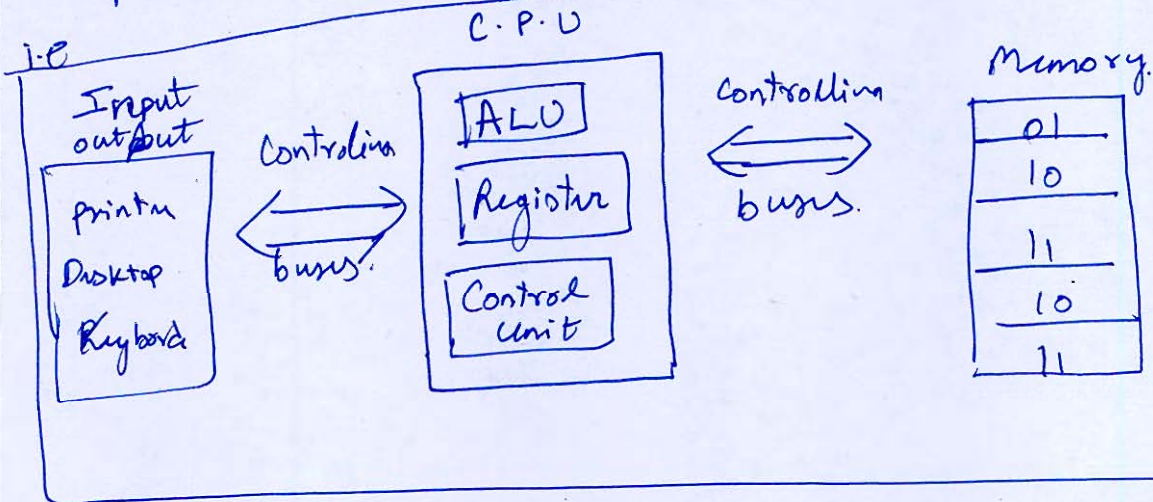 i.e
C.P.U
Input
output
printer
Desktop
Keybord
Controlina
buses.
ALU
Register
Control
unit
Controllina
buses.
Memory.
01
10
11
10
11